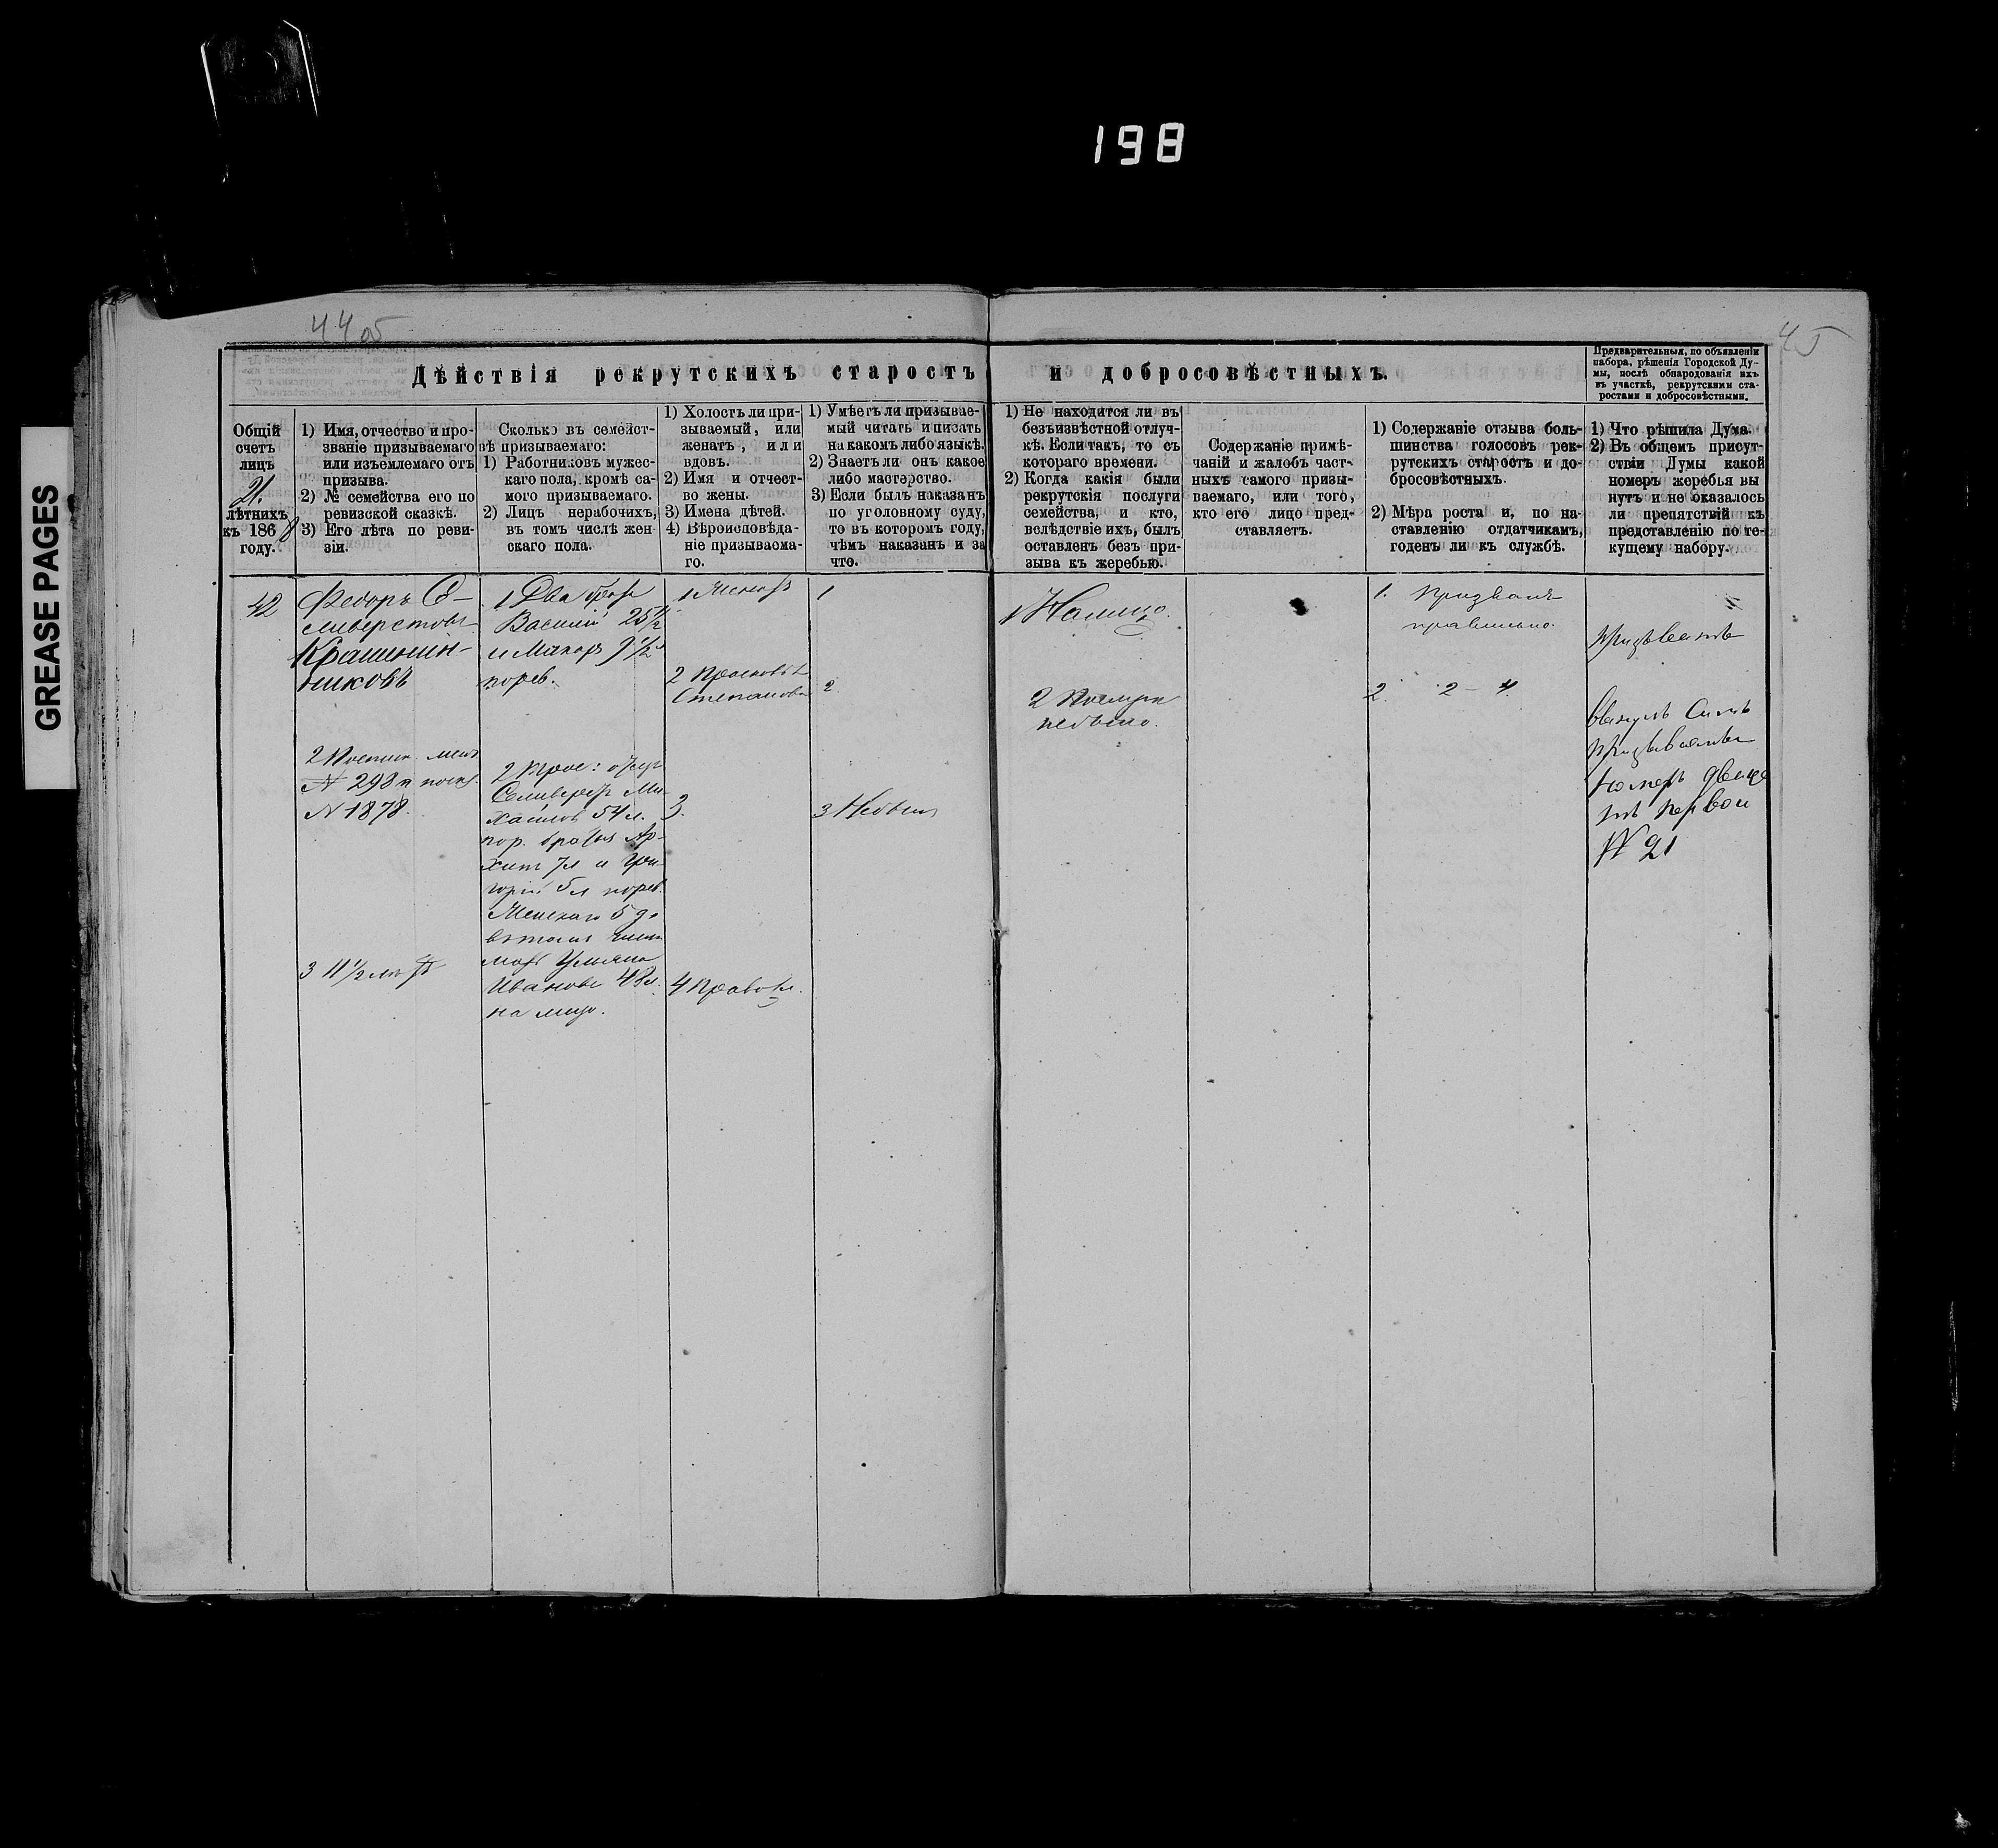 198
GREASE PAGES
44 об
45
Дѣйствія рекрутскихъ старостъ и добросовѣстныхъ.
Предварительныя, по объявленіи
набора, рѣшенія Городской Ду-
мы, послѣ обнародованія ихъ
въ участкѣ, рекрутскими ста-
ростами и добросовѣстными.
Общій
счетъ
лицъ
21.
лѣтнихъ
къ 1868
году.
1) Имя, отчество и про-
званіе призываемаго
или изъемлемаго отъ
призыва.
2) № семейства его по
ревизской сказкѣ.
3) Его лѣта по реви-
зіи.
Сколько въ семейст-
вѣ призываемаго:
1) Работниковъ мужес-
каго пола, кромѣ са-
мого призываемаго.
2) Лицъ нерабочихъ,
въ томъ числѣ жен-
скаго пола.
1) Холостъ ли при-
зываемый, или
женатъ, или
вдовъ.
2) Имя и отчест-
во жены.
3) Имена дѣтей.
4) Вѣроисповѣда-
ніе призываема-
го.
1) Умѣетъ ли призывае-
мый читать и писать
на какомъ либо языкѣ.
2) Знаетъ ли онъ какое
либо мастерство.
3) Если былъ наказанъ
по уголовному суду,
то въ которомъ году,
чѣмъ наказанъ и за
что.
1) Не находится ли въ
безъизвѣстной отлуч-
кѣ. Если такъ, то съ
котораго времени.
2) Когда какія были
рекрутскія послуги
семейства, и кто,
вслѣдствіе ихъ, былъ
оставленъ безъ при-
зыва къ жеребью.
Содержаніе примѣ-
чаній и жалобъ част-
ныхъ самого призы-
ваемаго, или того,
кто его лицо пред-
ставляетъ.
1) Содержаніе отзыва боль-
шинства голосовъ рек-
рутскихъ старостъ и до-
бросовѣстныхъ.
2) Мѣра роста и, по на-
ставленію отдатчикамъ,
годенъ ли къ службѣ.
1) Что рѣшила Дума.
2) Въ общемъ присут-
ствіи Думы какой
номеръ жеребья вы
нутъ и не оказалось
ли препятствій къ
представленію по те-
кущему набору.
42
Федоръ Се-
ливерстовъ
Крашенин-
никовъ
2
№ 293
№ 1878.
3 11 1/2 лѣтъ
1 Два брат
Василій 25 1/2
и Макаръ 9 1/2
порев.
2 Трое: отецъ
Селиверстъ Ми-
хайловъ 54 л.
пор. братья Ар-
хипъ 7 л и Гри-
горій 5 л порев.
Женскаго 5 д.
въ томъ числѣ
мать Ульяна
Иванова 48 л.
на лицо.
1 Женатъ
2 Прасковья
Степанова
3.
4 Правосл.
1
2.
3 Небылъ
1 Налицо.
2 Послуги
небыло.
1. Призванъ
правильно.
2. 2 - 4.
Призывать
вынулъ Самъ
призываемый
номеръ двадца
ть первой
№ 21